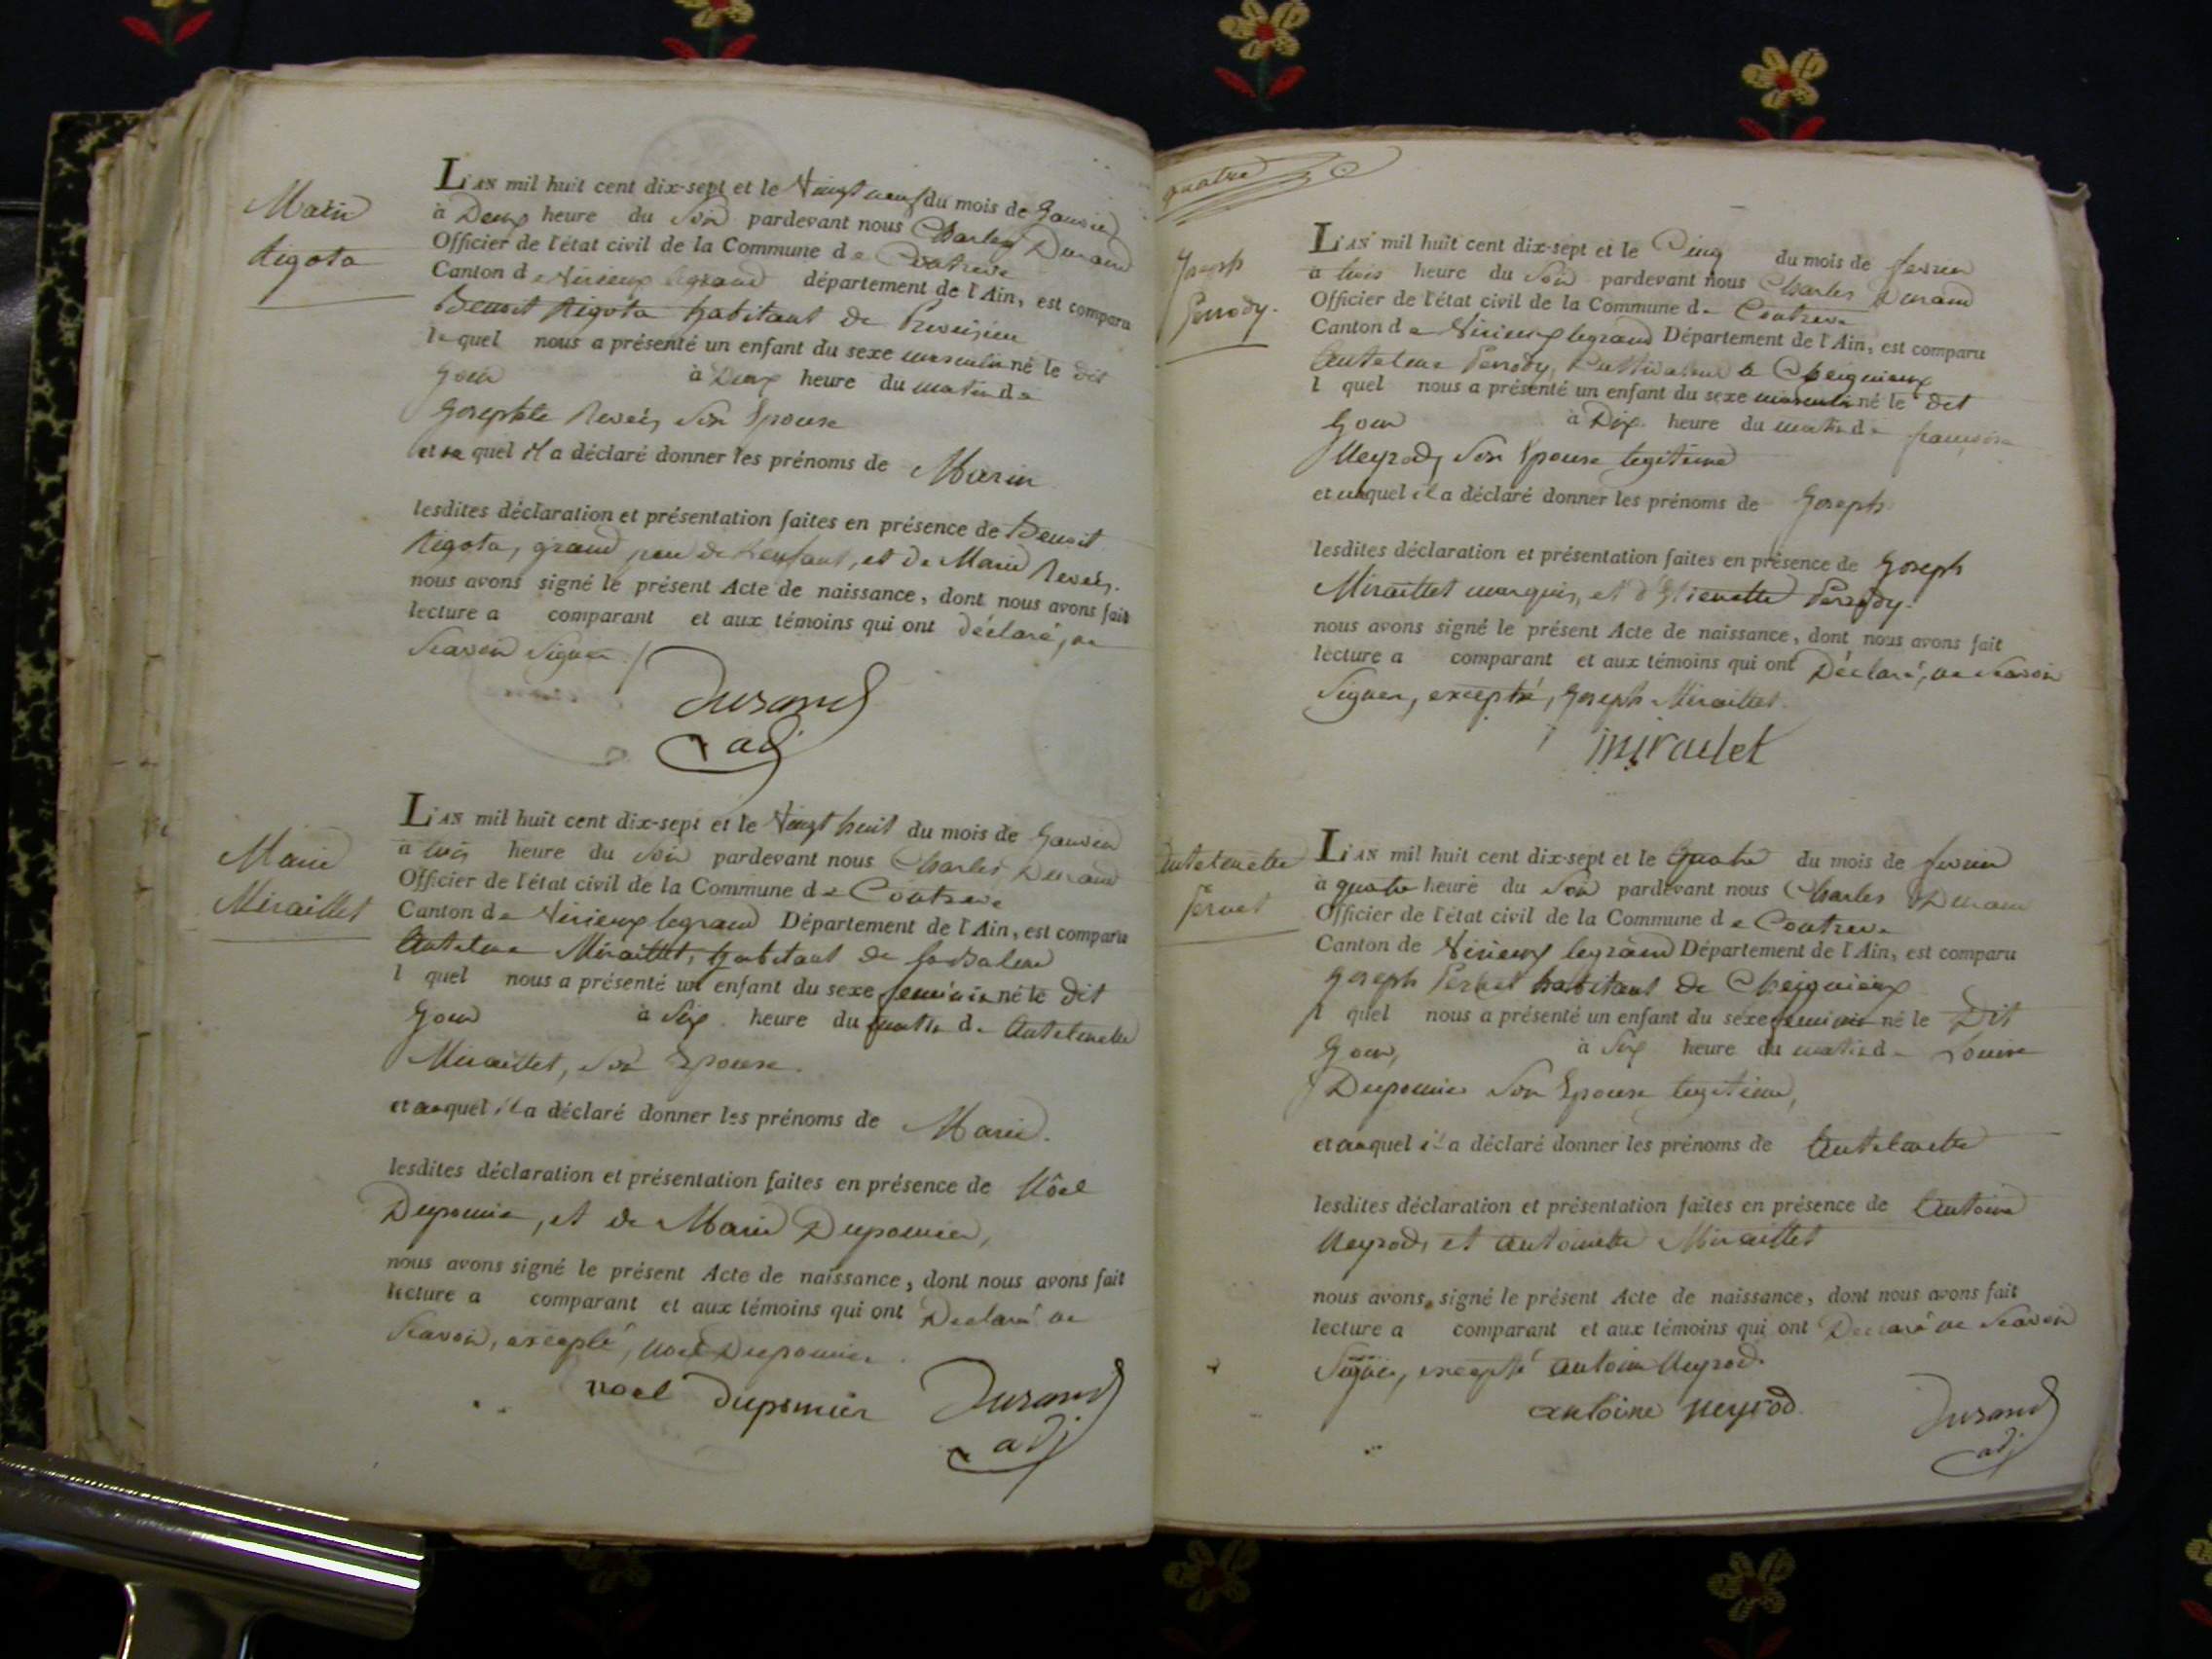 Marin
Rigota
L'AN mil huit cent dix-sept et le Vingt neuf du mois de Janvier
à Deux heure du Soir pardevant nous Charles Durand
Officier de l'état civil de la Commune de Contreve
Canton de Virieux legrand département de l'Ain, est comparu
Benoit Rigota habitant de
lequel nous a présenté un enfant du sexe masculin né le dit
Jour à Deux heure du matin de
Josephte Revés, Son Epouse
et quel il a déclaré donner les prénoms de Marin
lesdites déclaration et présentation faites en présence de Benoit
Rigota, grand pere de L'enfant, et de Marie Revés.
nous avons signé le présent Acte de naissance, dont nous avons fait
lecture a comparant et aux témoins qui ont déclaré, ne
Scavoir Signer /
Durand
adj
Marie
Miraillet
L'AN mil huit cent dix-sept et le Vingt huit du mois de Janvier
à trois heure du Soir pardevant nous Charles Durand
Officier de l'état civil de la Commune de Contreve
Canton de Virieux legrand Département de l'Ain, est comparu
Antelme Miraillet, habitant de
l quel nous a présenté un enfant du sexe feminin né le Dit
Jour à Six heure du matin de Antelmette
Miraillet, Son Epouse.
et auquel il a déclaré donner les prénoms de Marie.
lesdites déclaration et présentation faites en présence de Nôel
Dupomier, et de Marie Dupomier,
nous avons signé le présent Acte de naissance, dont nous avons fait
lecture a comparant et aux témoins qui ont Déclaré ne
Scavoir, excepté, Noel Dupomier.
noel dupomier Durand
adj
quatre
Joseph
Perrody.
L'AN mil huit cent dix-sept et le Cinq du mois de fevrier
à trois heure du Soir pardevant nous Charles Durand
Officier de l'état civil de la Commune de Contreve
Canton de Virieux legrand Département de l'Ain, est comparu
Antelme Perrody, Cultivateur à Cheignieux
l quel nous a présenté un enfant du sexe masculin né le dit
Jour à Dix heure du matin de françoise
Neyrod, Son Epouse legitime
et auquel il a déclaré donner les prénoms de Joseph
lesdites déclaration et présentation faites en présence de Joseph
Miraillet et d'Etienette Perrody.
nous avons signé le présent Acte de naissance, dont nous avons fait
lecture a comparant et aux témoins qui ont Déclaré, ne Scavoir
Signer, excepté, Joseph Miraillet.
miraulet
Antelmette
Pernet
L'AN mil huit cent dix-sept et le quatre du mois de fevrier
à quatre heure du Soir pardevant nous Charles Durand
Officier de l'état civil de la Commune de Contreve
Canton de Virieux legrand Département de l'Ain, est comparu
Joseph Pernet habitant de Cheignieux
l quel nous a présenté un enfant du sexe feminin né le Dit
Jour, à Six heure du matin de Louise
Dupomier Son Epouse legitime,
et auquel il a déclaré donner les prénoms de Antelmette
lesdites déclaration et présentation faites en présence de Antoine
Neyrod, et antoinette Miraillet
nous avons signé le présent Acte de naissance, dont nous avons fait
lecture a comparant et aux témoins qui ont Déclaré ne Scavoir
Signer, excepté antoine Neyrod.
antoine neyrod.
Durand
adj